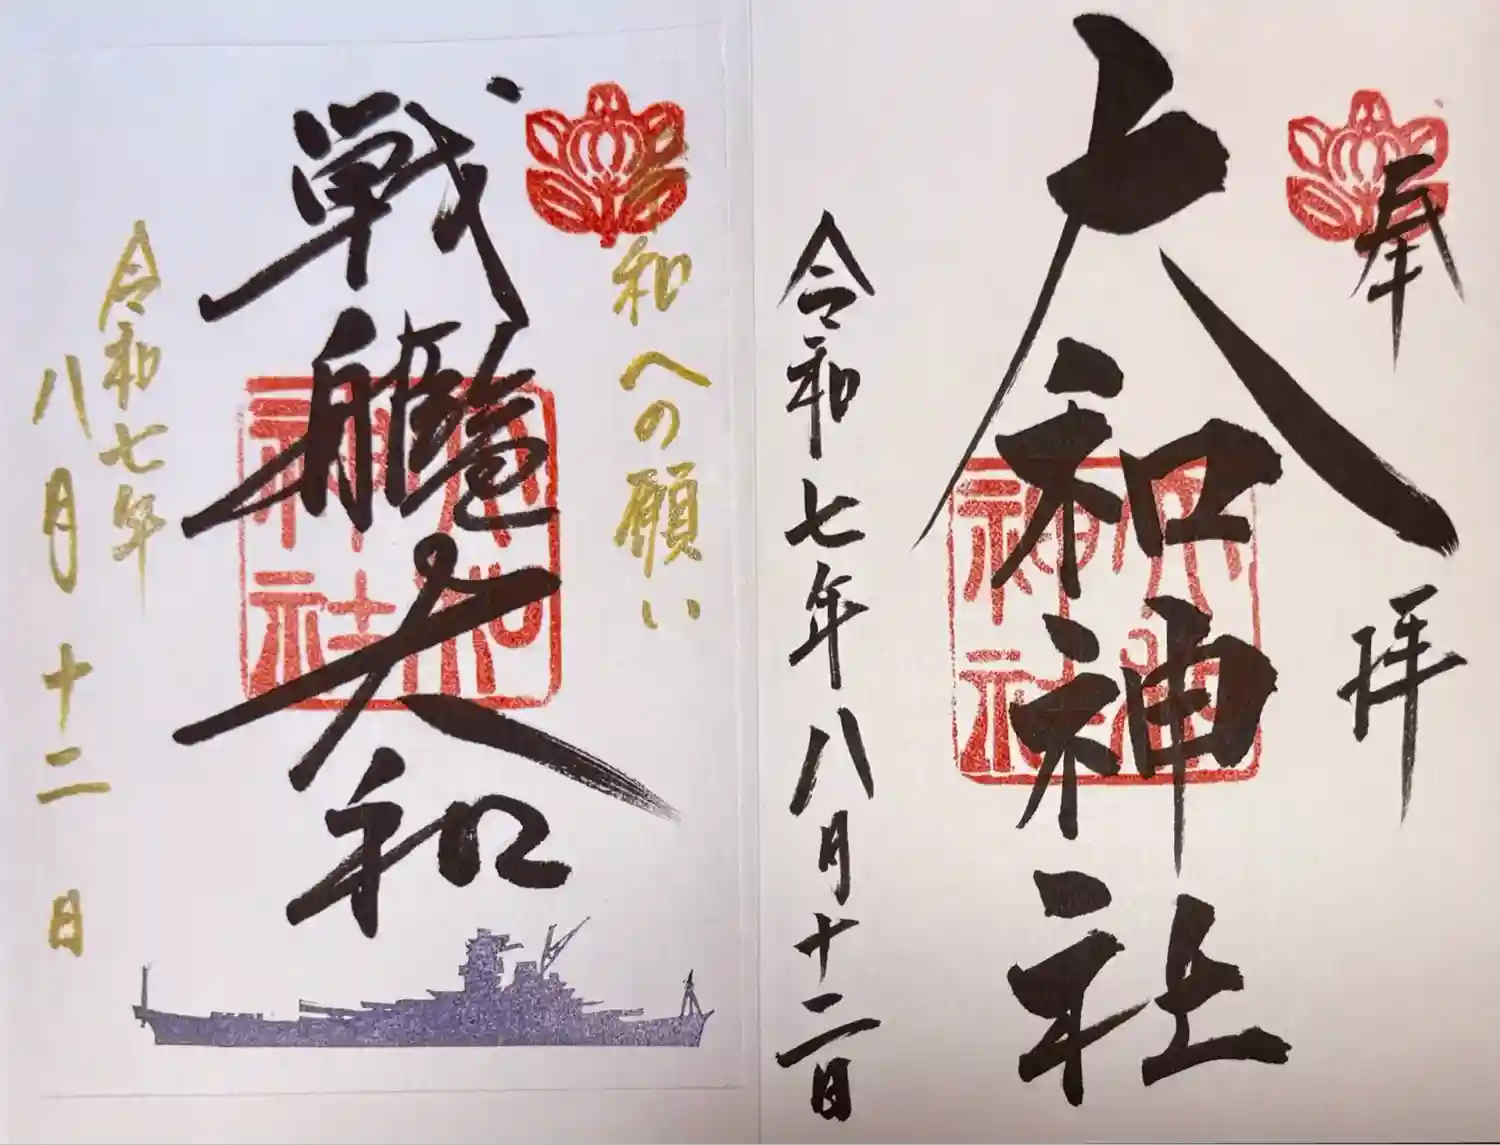 奉拝
大和神社
大和
神社
令和七年八月十二日
平和への願い
戦艦大和
大和
神社
令和七年
八月十二日